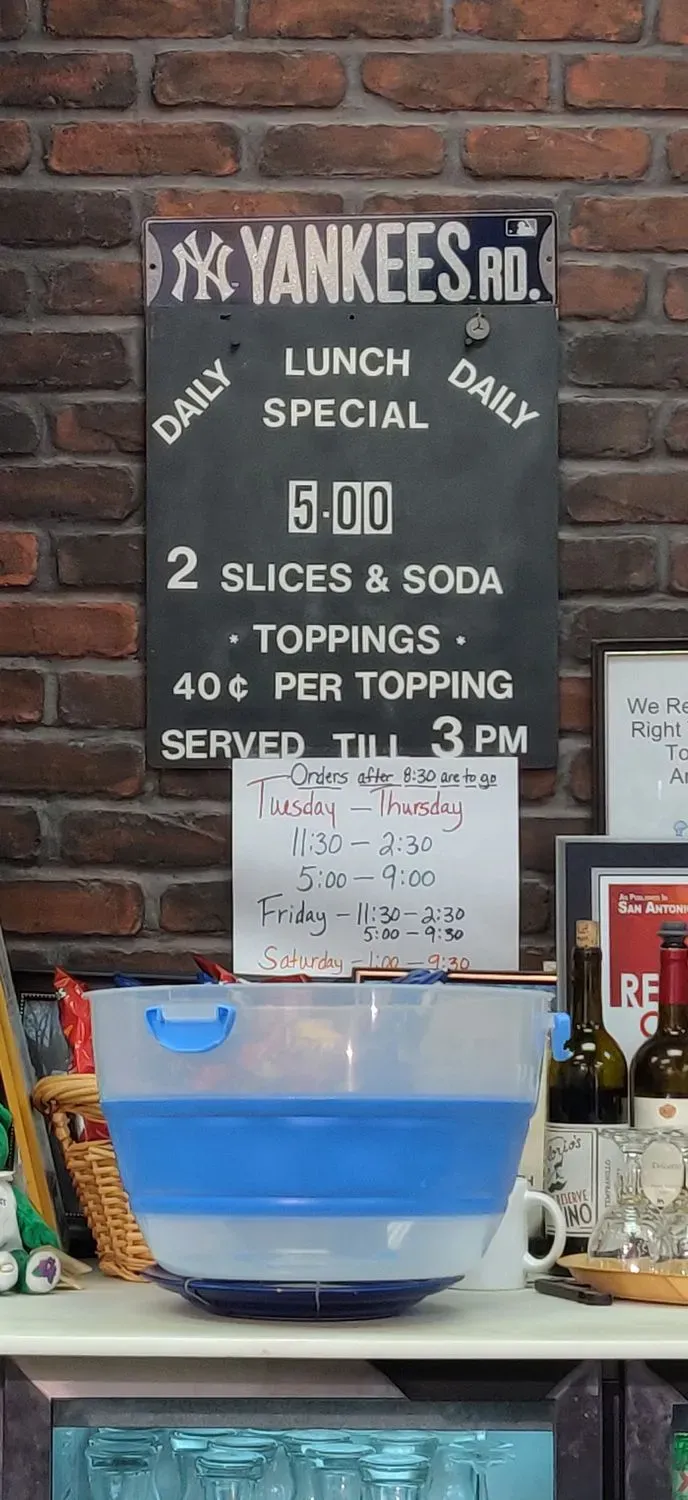 NY YANKEES RD.
DAILY LUNCH DAILY
SPECIAL
5.00
2 SLICES & SODA
* TOPPINGS *
40¢ PER TOPPING
SERVED TILL 3 PM
Orders after 8:30 are to go
Tuesday — Thursday
11:30 — 2:30
5:00 — 9:00
Friday — 11:30 — 2:30
5:00 — 9:30
Saturday — 1:00 — 9:30
We Re
Right
To
An
As Published In
SAN ANTONI
RE
TEMPRANILLO